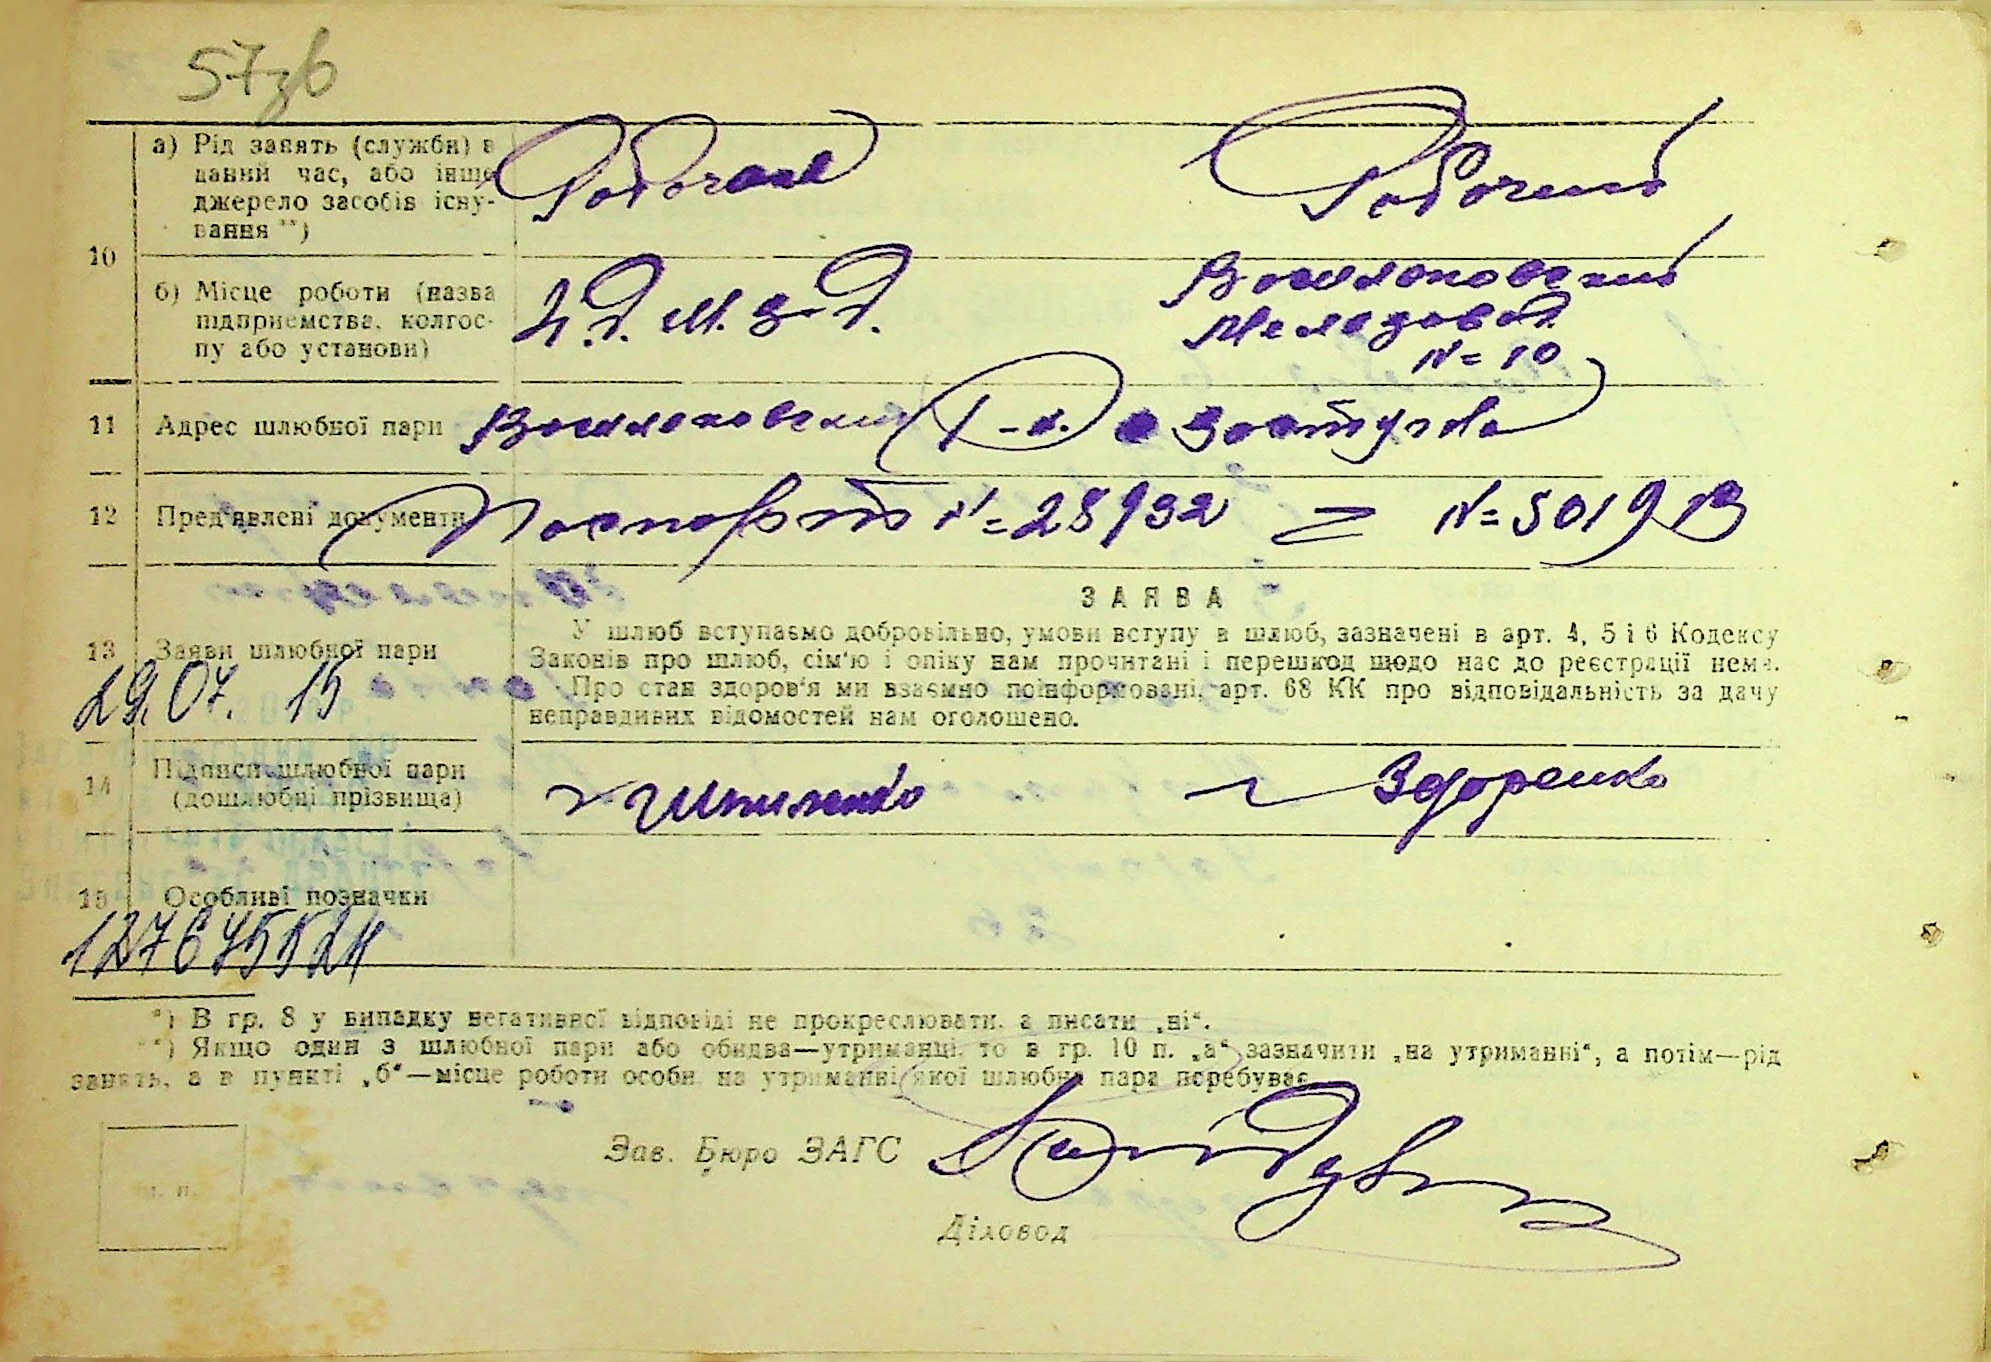 57зв
10
а) Рід занять (служби) в даний час, або інше джерело засобів існування **)
Робочая
Рабочий
б) Місце роботи (назва підприємства, колгоспу або установи)
N= 10
11 Адрес шлюбної пари
12 Пред'явлені документи
Паспорт N= 28932 = N= 501913
13 Заяви шлюбної пари
29.07. 15
ЗАЯВА
У шлюб вступаємо добровільно, умови вступу в шлюб, зазначені в арт. 4, 5 і 6 Кодексу
Законів про шлюб, сім'ю і опіку нам прочитані і перешкод щодо нас до реєстрації нема.
Про стан здоров'я ми взаємно поінформовані, арт. 68 КК про відповідальність за дачу
неправдивих відомостей нам оголошено.
14 Підписи шлюбної пари
(дошлюбні прізвища)
Шпиленко
Здоренко
15 Особливі позначки
*) В гр. 8 у випадку негативної відповіді не прокреслювати, а писати „ні“.
**) Якщо один з шлюбної пари або обидва—утриманці, то в гр. 10 п. „а“ зазначити „на утриманні“, а потім—рід
занять, а в пункті „б“—місце роботи особи, на утриманні якої шлюбна пара перебуває
Зав. Бюро ЗАГС
м. п.
Діловод